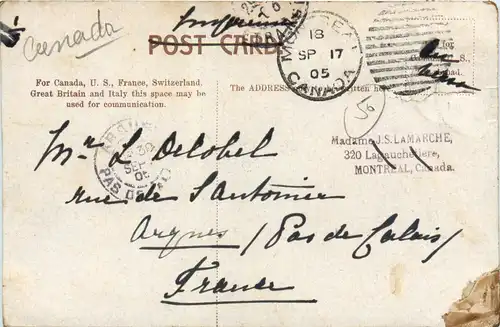 Canada
Imprimé
POST CARD
MONTREAL
18
SP 17
05
CANADA
For Canada, U. S., France, Switzerland.
Great Britain and Italy this space may be
used for communication.
The ADDRESS
for
S.,
56
Madame J.S. LAMARCHE,
320 Lagauchetiere,
MONTREAL, Canada.
PAS DE
05
Mr L. Delobel
rue de
Arques / Pas de Calais /
France